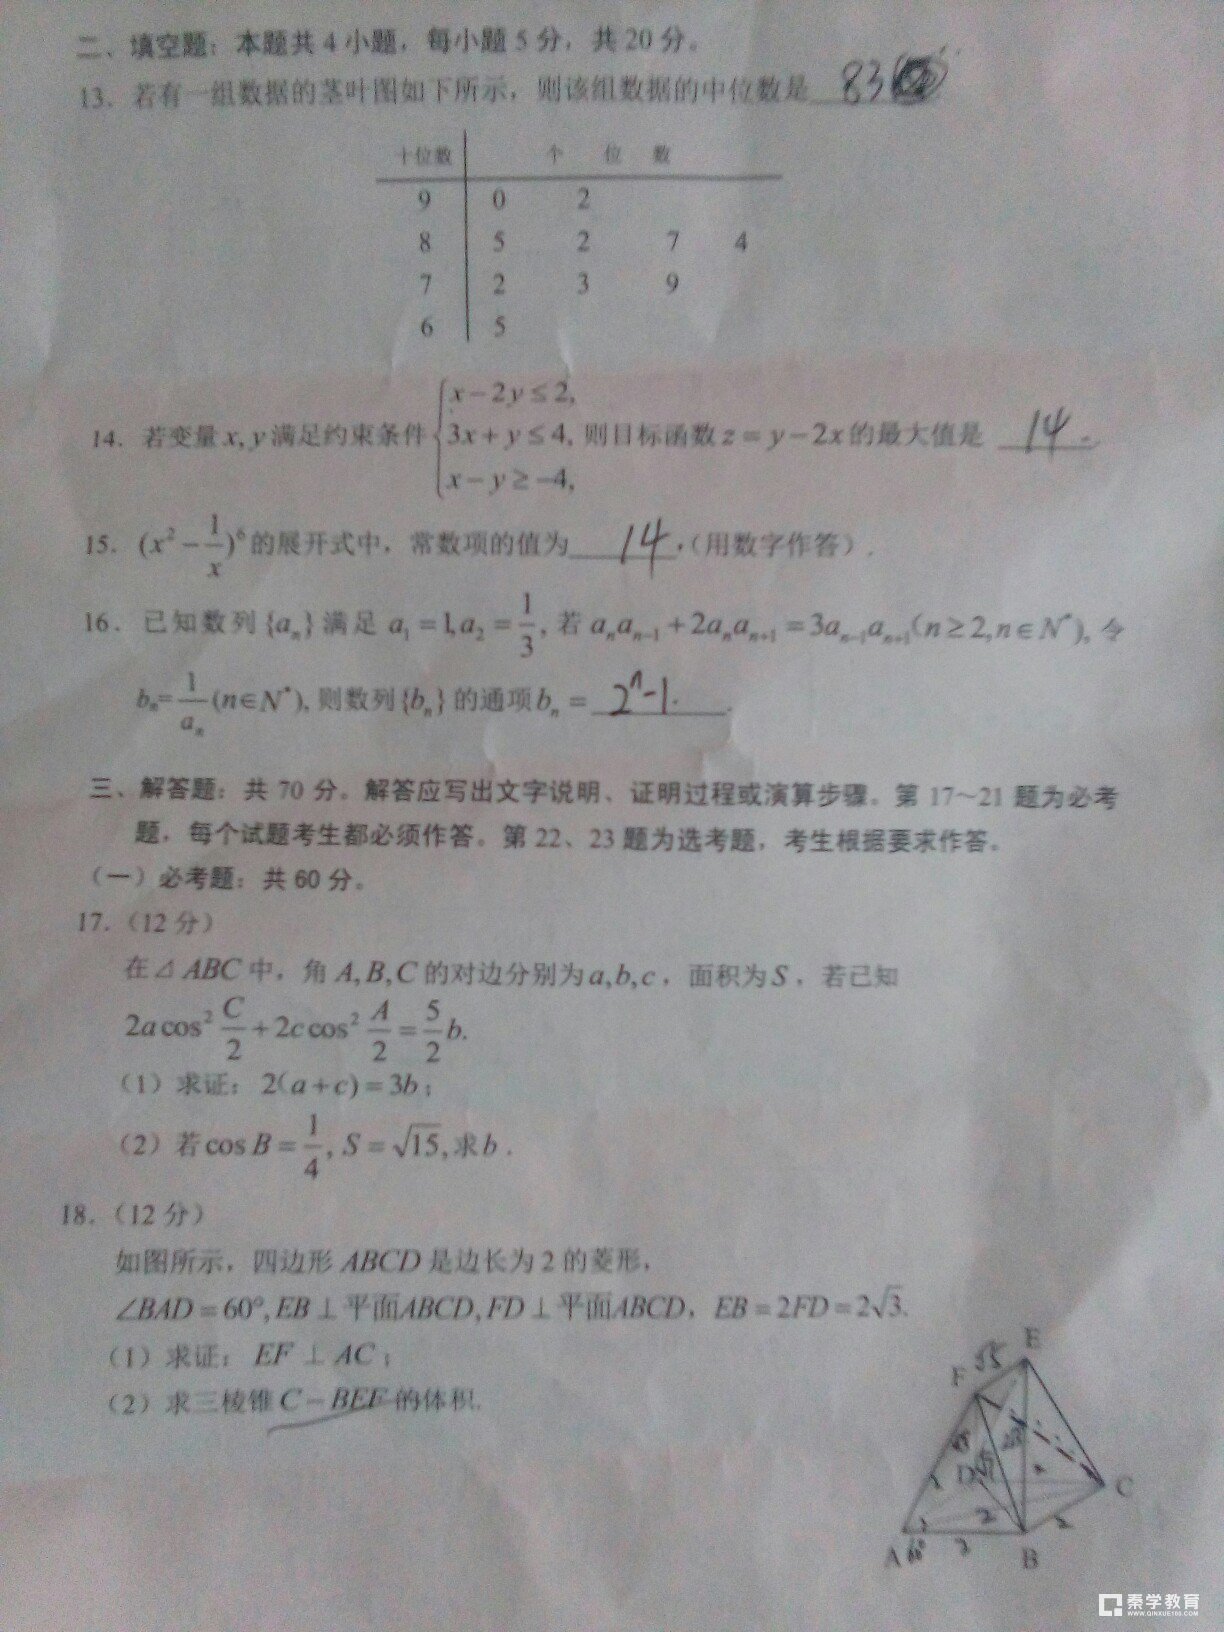 二、填空题：本题共4小题，每小题5分，共20分。
13．若有一组数据的茎叶图如下所示，则该组数据的中位数是 83
十位数 个 位 数
9 0 2
8 5 2 7 4
7 2 3 9
6 5
x－2y≤2,
14．若变量x, y满足约束条件 3x＋y≤4, 则目标函数z＝y－2x的最大值是 14.
x－y≥－4,
15．(x²－1/x)⁶的展开式中，常数项的值为 14 .（用数字作答）.
16．已知数列{aₙ}满足a₁＝1,a₂＝1/3, 若aₙaₙ₋₁＋2aₙaₙ₊₁＝3aₙ₋₁aₙ₊₁(n≥2,n∈N*), 令
bₙ=1/aₙ(n∈N*), 则数列{bₙ}的通项bₙ＝ 2ⁿ-1.
三、解答题：共70分。解答应写出文字说明、证明过程或演算步骤。第17～21题为必考
题，每个试题考生都必须作答。第22、23题为选考题，考生根据要求作答。
（一）必考题：共60分。
17.（12分）
在⊿ABC中，角A,B,C的对边分别为a,b,c，面积为S，若已知
2a cos² C/2＋2c cos² A/2＝5/2 b.
（1）求证：2(a＋c)＝3b；
（2）若cos B＝1/4, S＝√15,求b．
18.（12分）
如图所示，四边形ABCD是边长为2的菱形，
∠BAD＝60°,EB⊥平面ABCD,FD⊥平面ABCD，EB＝2FD＝2√3.
（1）求证：EF⊥AC；
（2）求三棱锥C－BEF的体积.
E
F
C
2
2
A 60° 2 B
秦学教育
WWW.QINXUE100.COM